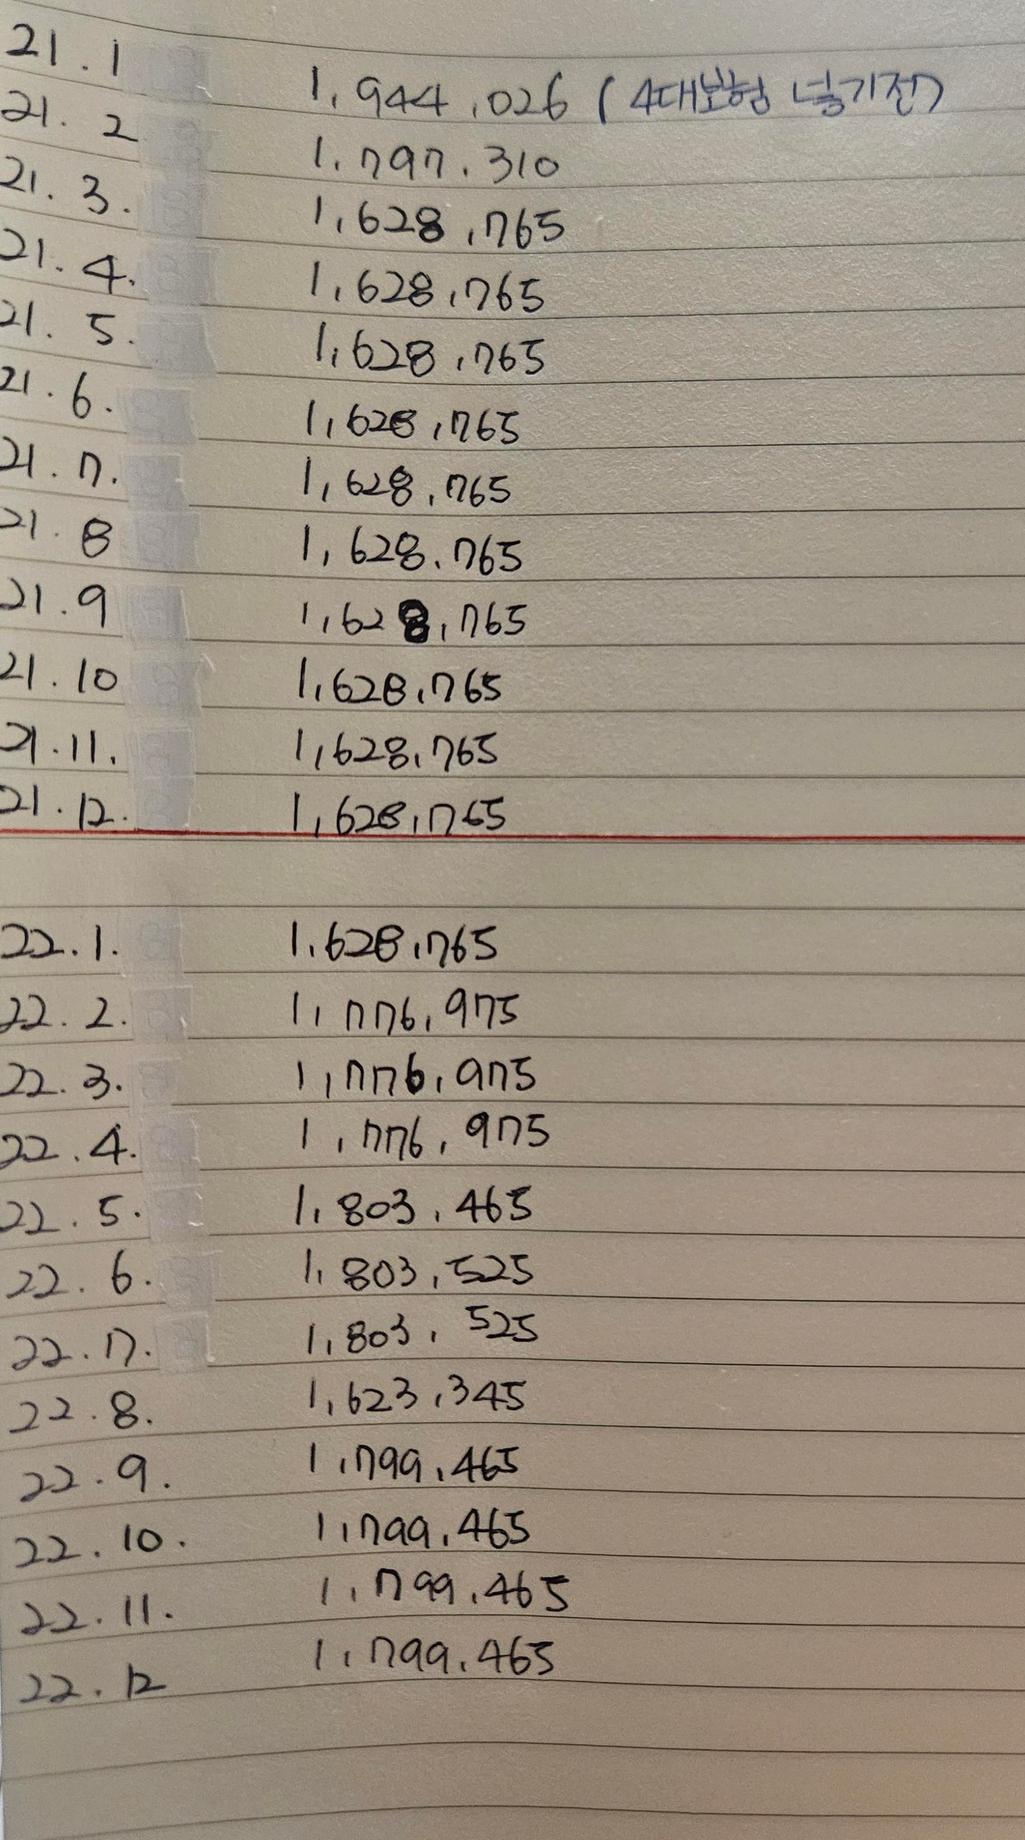 21.1 1,944,026 (4대보험 넣기전)
21. 2 1.797.310
21. 3. 1,628,765
21. 4. 1,628,765
21. 5. 1,628,765
21. 6. 1,628,765
21. 7. 1,628,765
21. 8 1,628.765
21.9 1,628,765
21.10 1,628,765
21.11. 1,628,765
21.12. 1,628,765
22.1. 1.628,765
22.2. 1,776,975
22.3. 1,776,975
22.4. 1,776,975
22.5. 1,803,465
22.6. 1,803,525
22.7. 1,803,525
22.8. 1,623,345
22.9. 1,799,465
22.10. 1,799,465
22.11. 1,799,465
22.12 1,799,465